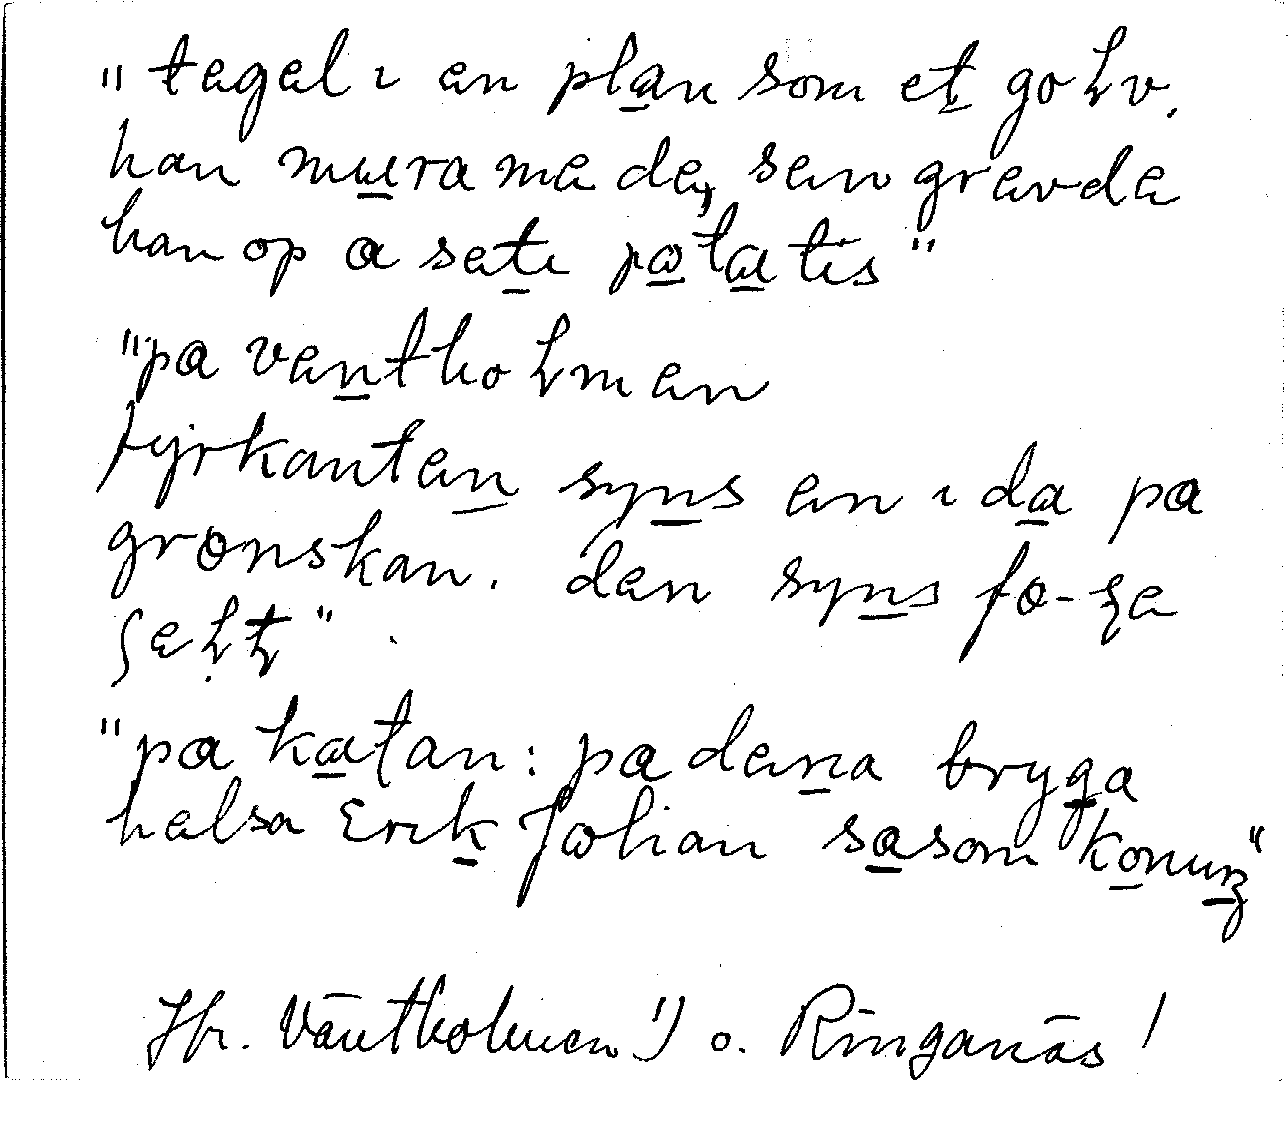 "tegel i en plan som et golv.
han mura me de, sen gravde
han op a seti potatis"
"pa ventholmen
fyrkanten syns en i da pa
grønskan. den syns fo-ṣe
ʂelt".
"pa katan: pa dena bryga
helsa Erik Johan sasom konuŋ"
Jfr. Väntholmen 1) o. Ringanäs!